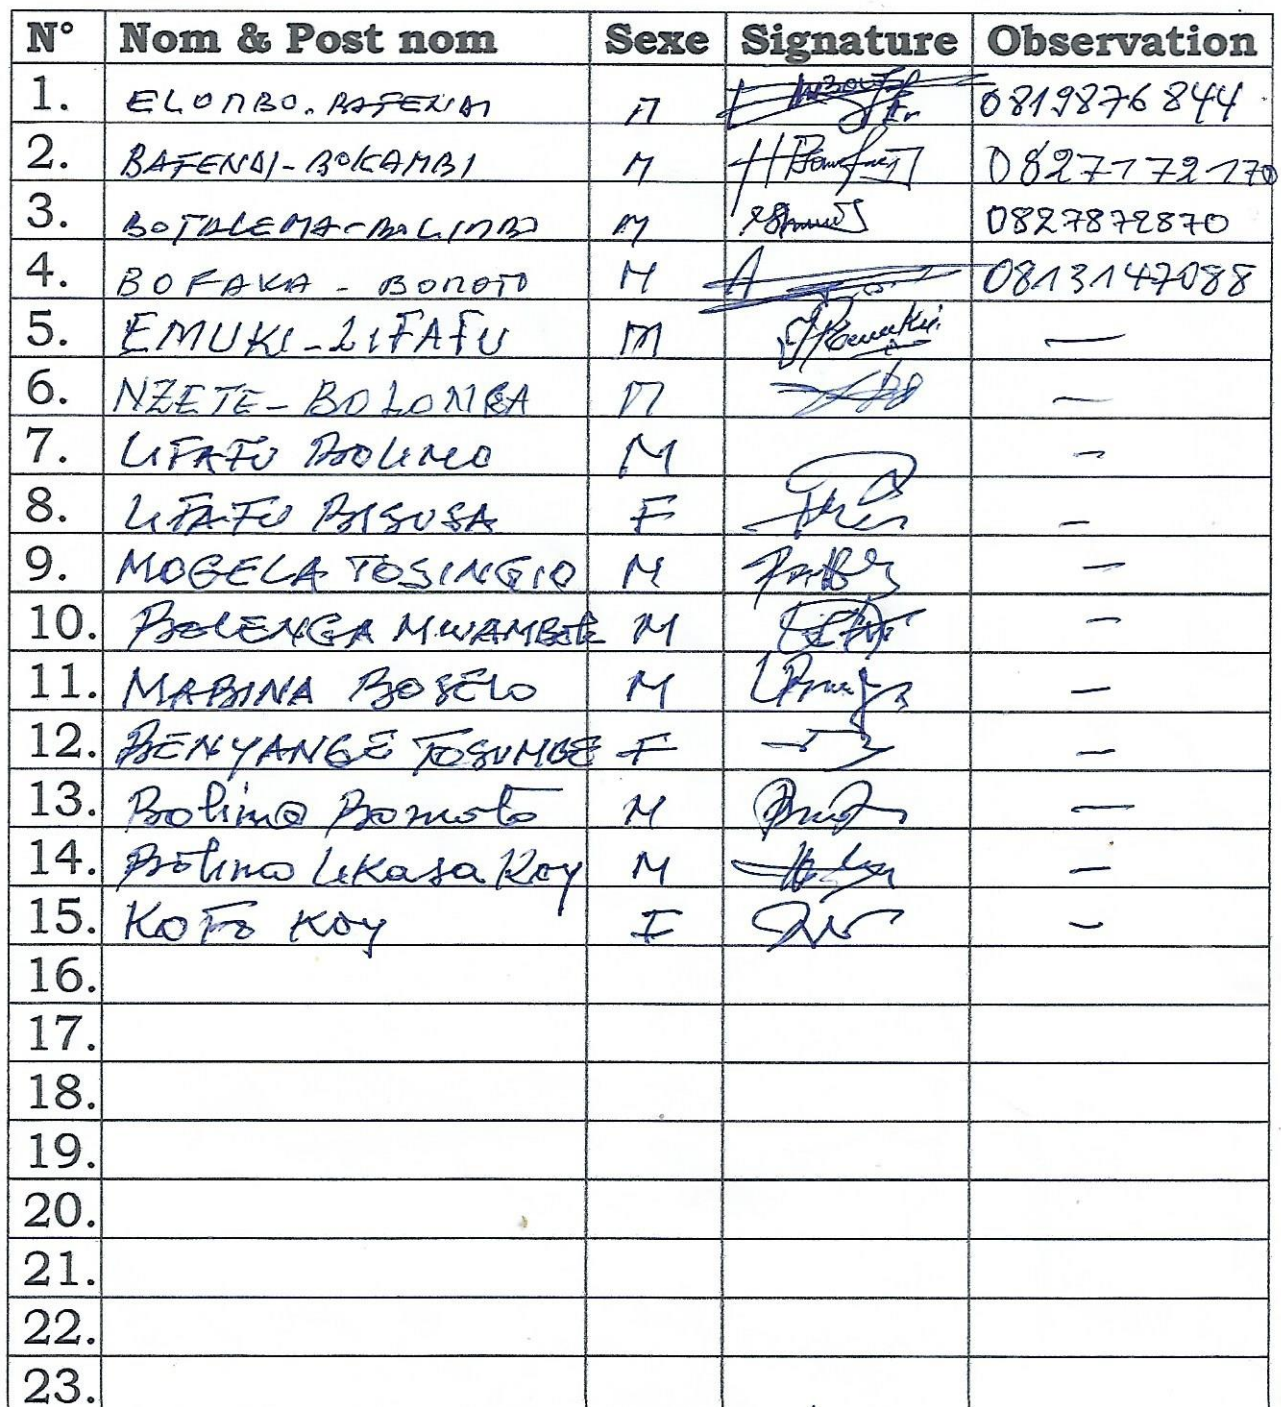 N° Nom & Post nom Sexe Signature Observation
1. ELOMBO. BAFENDI M 0819876844
2. BAFENDI-BOKAMBI M 0827172170
3. BOTALEMA-BOLIMBO M 0827872870
4. BOFAKA - BOMOTO M 0813147088
5. EMUKI-LIFAFU M —
6. NZETE-BOLOMBA M —
7. LIFAFU BOLIMO M —
8. LIFAFU BISUSA F —
9. MOGELA TOSINGIO M —
10. BOLENGA MWAMBE M —
11. MABINA BOSELO M —
12. BENYANGE TOSUMBE F —
13. Bolimo Bomoto M —
14. Bolimo Likasa Koy M —
15. KOFO KOY F —
16.
17.
18.
19.
20.
21.
22.
23.